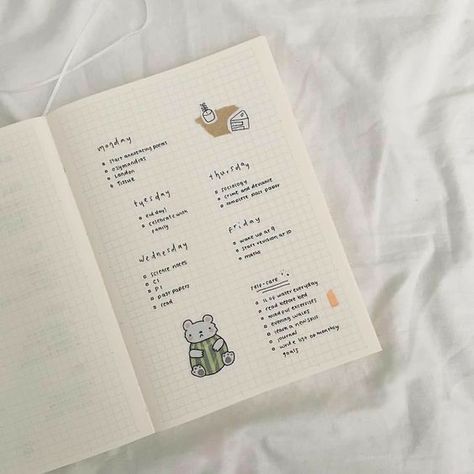 monday
start annotating poems
ozymandias
London
Tissue
tuesday
eid day!
celebrate with
family
wednesday
science notes
C1
P1
past papers
read
thursday
sociology
crime and deviance
complete past paper
friday
wake up at 9
start revision at 10
maths
self-care
2L of water everyday
read before bed
mindful exercises
evening walks
learn a new skill
journal
write list on monthly
goals